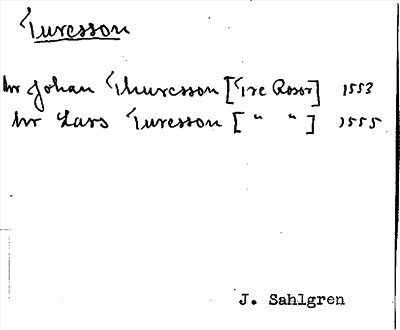 Turesson
hr Johan Thuresson [Tre Rosor] 1553
hr Lars Turesson [ " " ] 1555
J. Sahlgren